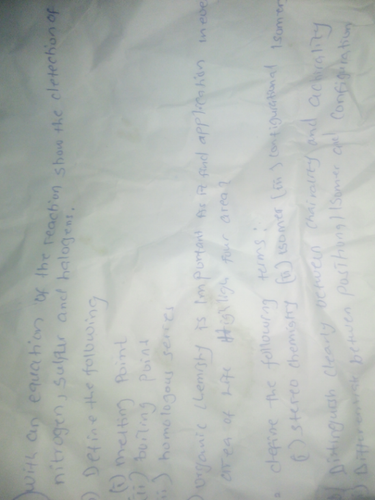 ) with an equation of the reaction show the detection of
nitrogen, sulfur and halogens.
) Define the following
(i) melting Point
(ii) boiling Point
(iii) homologous series
) organic chemistry is important as it find application in
area of life highligh four area?
define the following terms:
(i) stereo chemistry (ii) isomer (iii) configurational Isomer
) Distinguish clearly between chirality and achirality
) Differentiate between positional Isomer and configuration